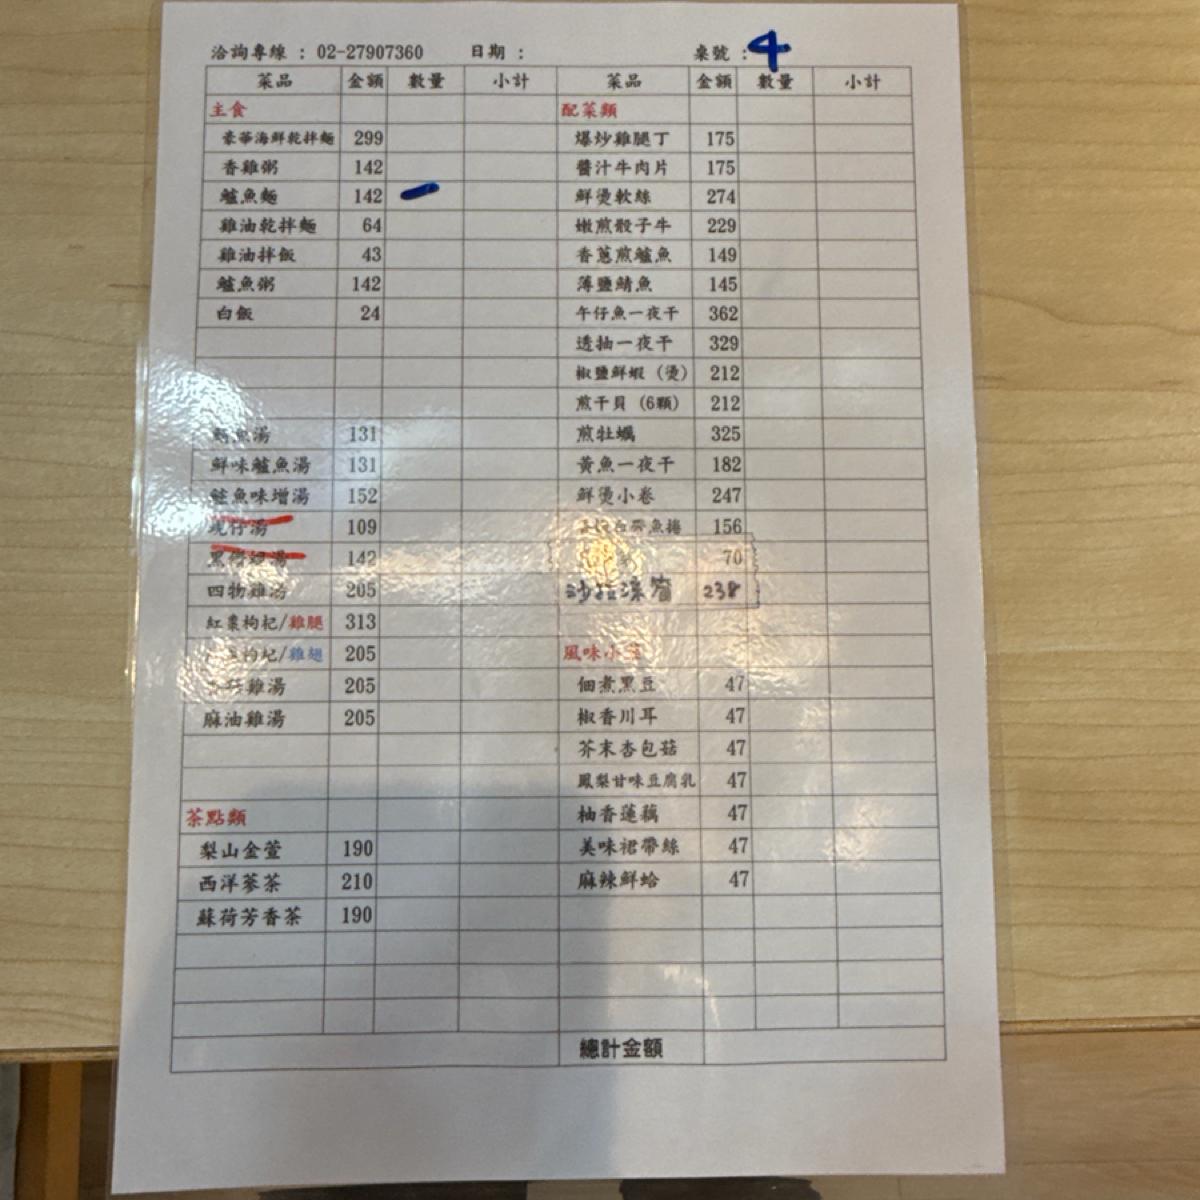 洽詢專線：02-27907360 日期： 桌號：4
菜品 金額 數量 小計 菜品 金額 數量 小計
主食 配菜類
豪華海鮮乾拌麵 299 爆炒雞腿丁 175
香雞粥 142 醬汁牛肉片 175
鱸魚麵 142 鮮燙軟絲 274
雞油乾拌麵 64 嫩煎骰子牛 229
雞油拌飯 43 香蔥煎鱸魚 149
鱸魚粥 142 薄鹽鯖魚 145
白飯 24 午仔魚一夜干 362
透抽一夜干 329
椒鹽鮮蝦（燙） 212
煎干貝（6顆） 212
魚湯 131 煎牡蠣 325
鮮味鱸魚湯 131 黃魚一夜干 182
鮭魚味增湯 152 鮮燙小卷 247
蜆仔湯 109 魚捲 156
湯 142 70
四物雞湯 205 沙拉 238
紅棗枸杞/雞腿 313
枸杞/雞翅 205 風味小
雞湯 205 佃煮黑豆 47
麻油雞湯 205 椒香川耳 47
芥末杏包菇 47
鳳梨甘味豆腐乳 47
茶點類 柚香蓮藕 47
梨山金萱 190 美味裙帶絲 47
西洋蔘茶 210 麻辣鮮蛤 47
蘇荷芳香茶 190
總計金額